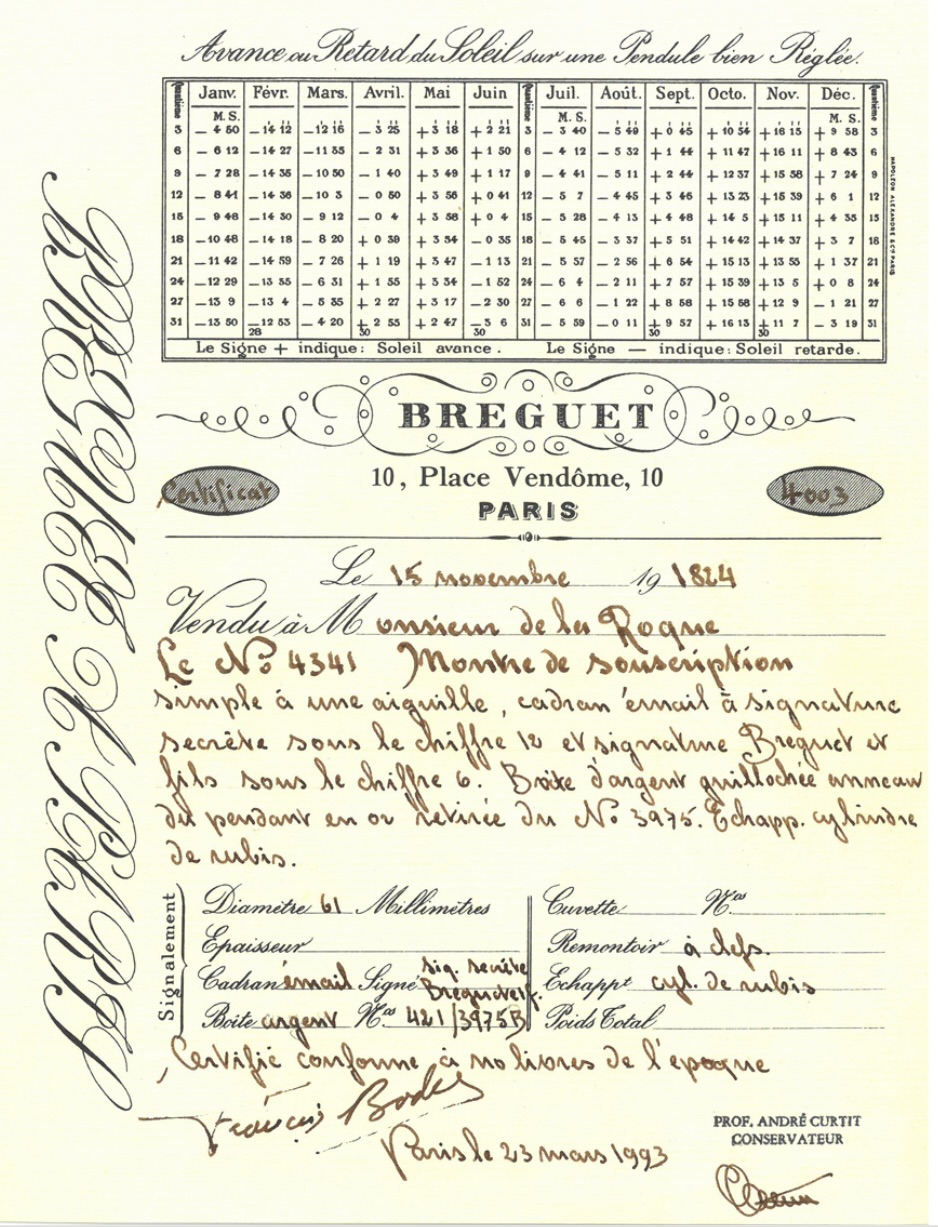 Avance ou Retard du Soleil sur une Pendule bien Réglée.
Quantième Janv. Févr. Mars. Avril. Mai Juin Quantième Juil. Août. Sept. Octo. Nov. Déc. Quantième
M. S. M. S. M. S.
3 — 4 50 —14 12 —12 16 — 3 25 + 3 18 + 2 21 3 — 3 40 — 5 49 + 0 45 + 10 54 + 16 15 + 9 58 3
6 — 6 12 —14 27 —11 35 — 2 31 + 3 36 + 1 50 6 — 4 12 — 5 32 + 1 44 + 11 47 + 16 11 + 8 43 6
9 — 7 28 —14 35 —10 50 — 1 40 + 3 49 + 1 17 9 — 4 41 — 5 11 + 2 44 + 12 37 + 15 58 + 7 24 9
12 — 8 41 —14 36 —10 3 — 0 50 + 3 56 + 0 41 12 — 5 7 — 4 45 + 3 46 + 13 23 + 15 39 + 6 1 12
15 — 9 46 —14 30 — 9 12 — 0 4 + 3 58 + 0 4 15 — 5 28 — 4 13 + 4 48 + 14 5 + 15 11 + 4 35 15
18 —10 46 —14 18 — 8 20 + 0 39 + 3 54 — 0 35 18 — 5 45 — 3 37 + 5 51 + 14 42 + 14 37 + 3 7 18
21 —11 42 —14 59 — 7 26 + 1 19 + 3 47 — 1 13 21 — 5 57 — 2 56 + 6 54 + 15 13 + 13 55 + 1 37 21
24 —12 29 —13 35 — 6 31 + 1 55 + 3 34 — 1 52 24 — 6 4 — 2 11 + 7 57 + 15 39 + 13 5 + 0 8 24
27 —13 9 —13 4 — 5 35 + 2 27 + 3 17 — 2 30 27 — 6 6 — 1 22 + 8 58 + 15 58 + 12 9 — 1 21 27
31 —13 50 —12 53 — 4 20 + 2 55 + 2 47 — 3 6 31 — 5 59 — 0 11 + 9 57 + 16 13 + 11 7 — 3 19 31
28 30 30 30 30
Le Signe + indique: Soleil avance. Le Signe — indique: Soleil retarde.
NAPOLEON ALEXANDRE & Cie PARIS
BREGUET
10, Place Vendôme, 10
PARIS
Certificat
4003
BREGUET A PARIS
Le 15 novembre 19 1824
Vendu à Monsieur de la Roque
Le No 4341 Montre de souscription
simple à une aiguille, cadran émail à signature
secrète sous le chiffre 12 et signature Breguet et
fils sous le chiffre 6. Boite d'argent guillochée anneau
du pendant en or retirée du No 3975. Echapp. cylindre
de rubis.
Signalement
Diamètre 61 Millimètres
Epaisseur
Cadran émail Signé sig. secrète Breguet et f.
Boite argent Nos 421/3975B
Cuvette Nos
Remontoir à clefs.
Echappt cyl. de rubis
Poids Total
Certifié conforme à no livres de l'époque
PROF. ANDRÉ CURTIT
CONSERVATEUR
Paris le 23 mars 1993